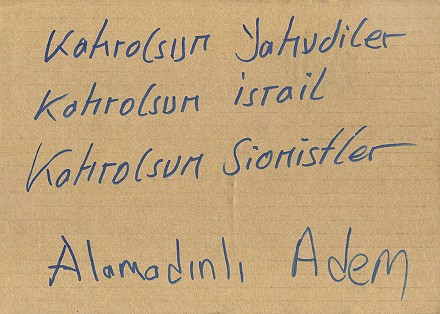 Kahrolsun Yahudiler
Kahrolsun israil
Kahrolsun Sionistler
Alamadınlı Adem